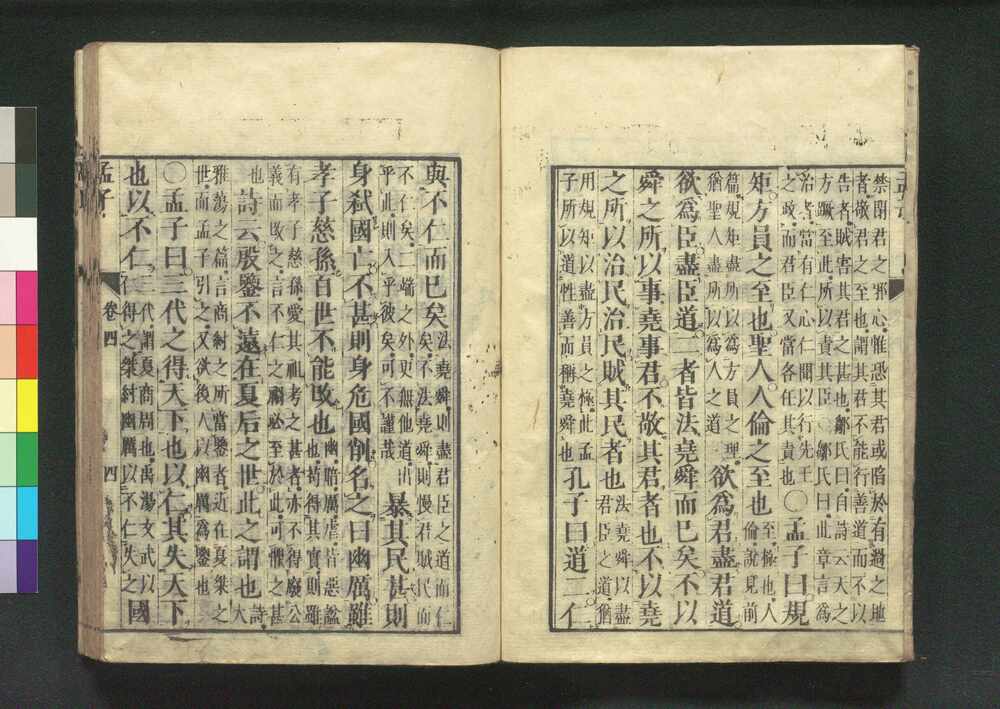 禁閉君之邪心惟恐其君或陷於有過之地
者敬君之至也謂其君不能行善道而不以
告者賊害其君之甚也鄒氏曰自詩云天之
方蹶至此所以責其臣鄒氏曰此章言爲
治者當有仁心仁聞以行先王
之政而君臣又當各任其責也
○孟子曰規
矩方員之至也聖人人倫之至也
至極也人
倫說見前
篇規矩盡所以爲方員之理
猶聖人盡所以爲人之道
欲爲君盡君道
欲爲臣盡臣道二者皆法堯舜而已矣不以
舜之所以事堯事君不敬其君者也不以堯
之所以治民治民賊其民者也
法堯舜以盡
君臣之道猶
用規矩以盡方員之極此孟
子所以道性善而稱堯舜也
孔子曰道二仁
與不仁而已矣
法堯舜則盡君臣之道而仁
矣不法堯舜則慢君賊民而
不仁矣二端之外更無他道出
乎此則入乎彼矣可不謹哉
暴其民甚則
身弑國亡不甚則身危國削名之曰幽厲雖
孝子慈孫百世不能改也
幽暗厲虐皆惡謚
也苟得其實則雖
有孝子慈孫愛其祖考之甚者亦不得廢公
義而改之言不仁之禍必至於此可懼之甚
也
詩云殷鑒不遠在夏后之世此之謂也
詩
大
雅蕩之篇言商紂之所當鑒者近在夏桀之
世而孟子引之又欲後人以幽厲爲鑒也
○孟子曰三代之得天下也以仁其失天下
也以不仁
三代謂夏商周也禹湯文武以
仁得之桀紂幽厲以不仁失之
國
孟子
卷四
四